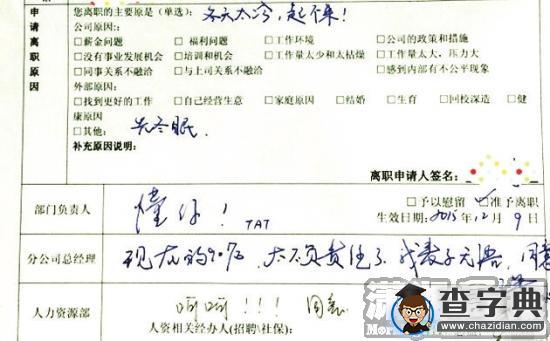 申 您离职的主要原是(单选): 冬天太冷,起不来!
请 公司原因:
离 □薪金问题 □ 福利问题 □工作环境 □公司的政策和措施
职 □没有事业发展机会 □培训和机会 □工作量太少和太枯燥 □工作量太大,压力大
原 □同事关系不融洽 □与上司关系不融洽 □感到内部有不公平现象
因 外部原因:
□找到更好的工作 □自己经营生意 □家庭原因 □结婚 □生育 □回校深造 □健
康原因
□其他: 去冬眠.
补充原因说明:
离职申请人签名:
部门负责人 懂你! TAT
□予以慰留 □准予离职
生效日期: 2015年12月9日
分公司总经理 现在的90后,太不负责任了.我表示无语,同意
人力资源部 呵呵!!! 同意
人资相关经办人(招聘\社保):
查字典
www.chazidian.com